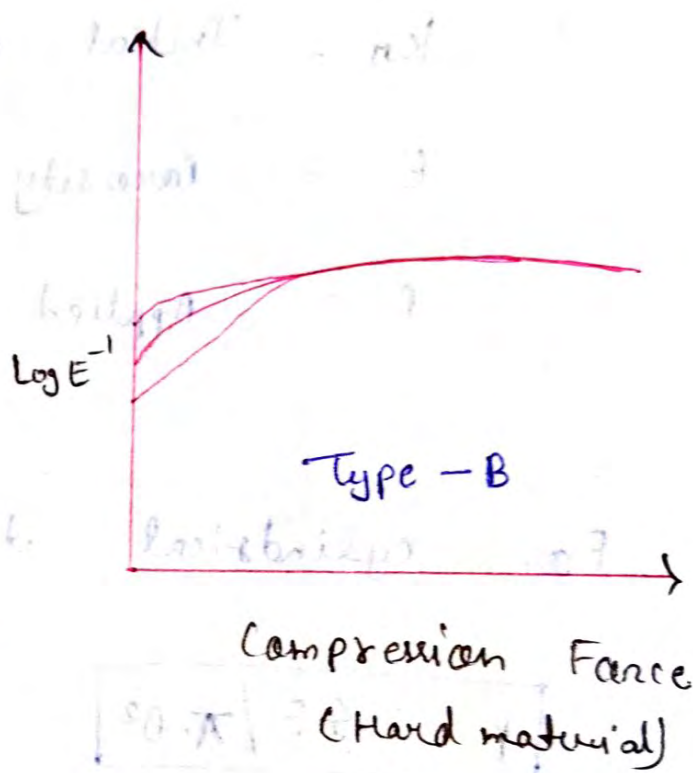 Log E⁻¹
Type - B
Compression Force
(Hard material)